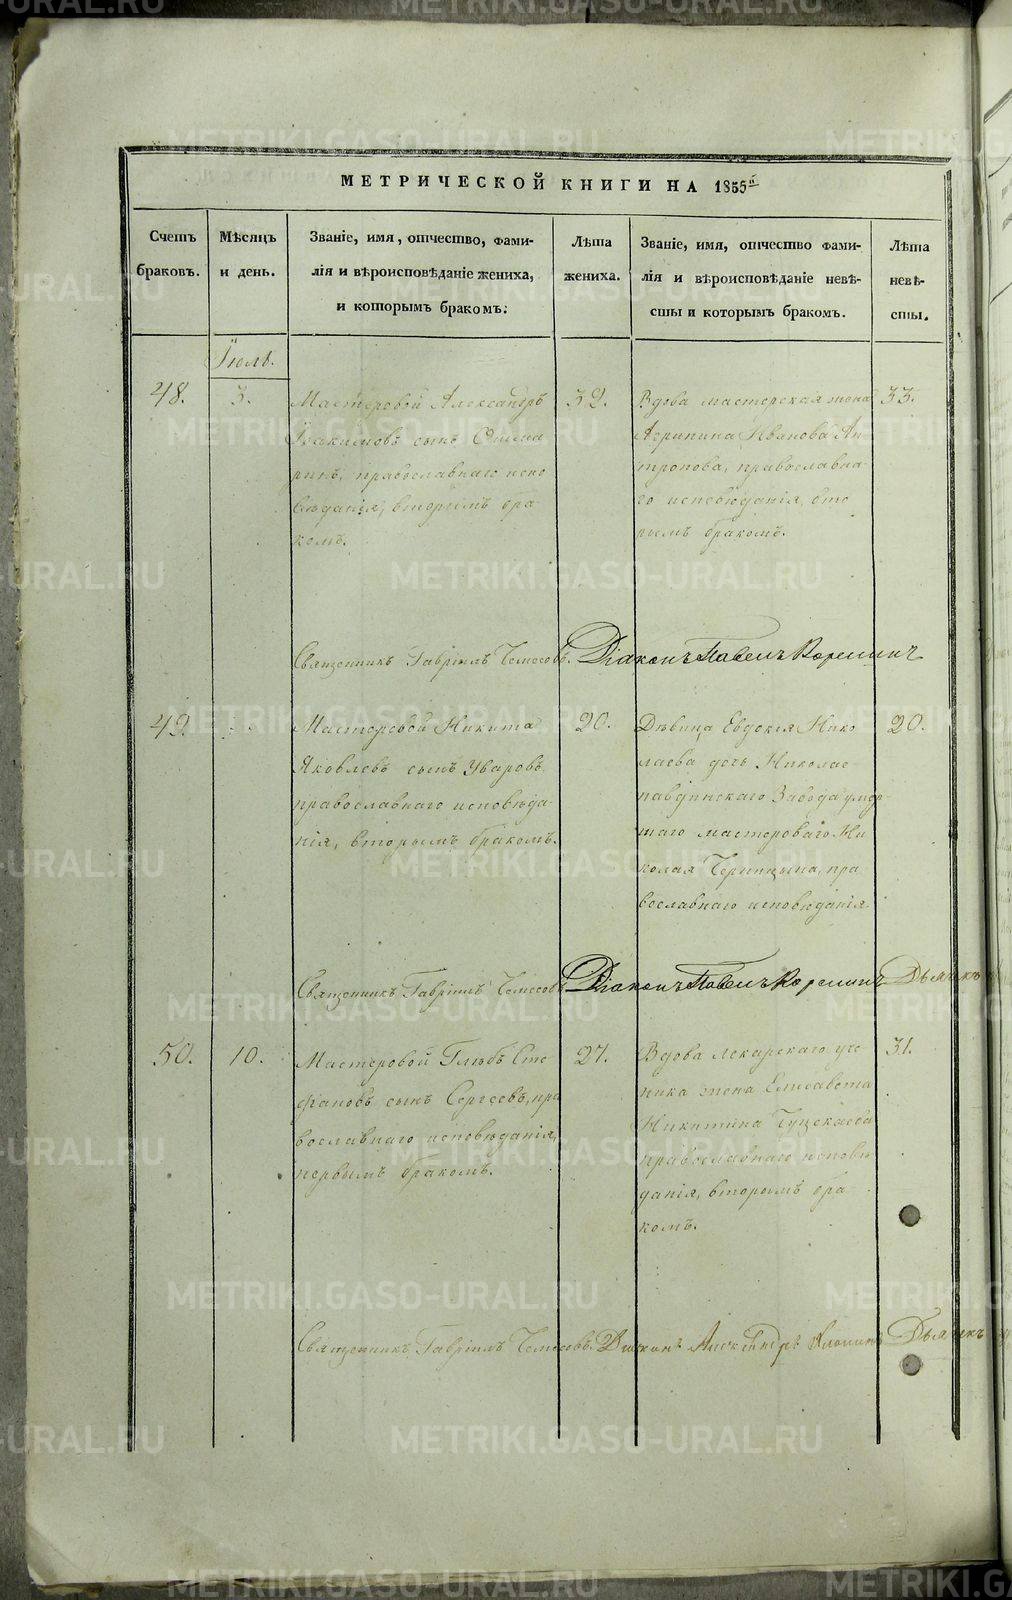 МЕТРИЧЕСКОЙ КНИГИ НА 1855й
Счетъ браковъ.
Мѣсяцъ и день.
Званіе, имя, отчество, фами-
лія и вѣроисповѣданіе жениха,
и которымъ бракомъ.
Лѣта жениха.
Званіе, имя, отчество фами-
лія и вѣроисповѣданіе невѣ-
сты и которымъ бракомъ.
Лѣта невѣ-
сты.
Іюль.
48.
3.
Мастеровой Александръ
Іоакимовъ сынъ
православнаго испо
вѣданія, вторымъ бра-
комъ.
32.
Вдова мастерская жена
Агрипина Иванова Ан
тропова, православна-
го исповѣданія, вто
рымъ бракомъ.
33.
Священникъ Гавріилъ
Діаконъ Павелъ
49.
Мастеровой Никита
Яковлевъ сынъ Уваровъ
православнаго исповѣда-
нія, вторымъ бракомъ.
20.
Дѣвица Евдокія Нико
лаева дочь Николае-
павдинскаго Завода умер-
шаго мастероваго Ни
колая пра
вославнаго исповѣданія.
20.
Священникъ Гавріилъ
Діаконъ Павелъ
Дьячекъ
50.
10.
Мастеровой Глѣбъ Сте
фановъ сынъ Сергеевъ, пра
вославнаго исповѣданія,
первымъ бракомъ.
27.
Вдова лекарскаго уче
ника жена Елисавета
Никитина
православнаго исповѣ
данія, вторымъ бра-
комъ.
31.
Священникъ Гавріилъ
Діаконъ Александръ
Дьячекъ
METRIKI.GASO-URAL.RU